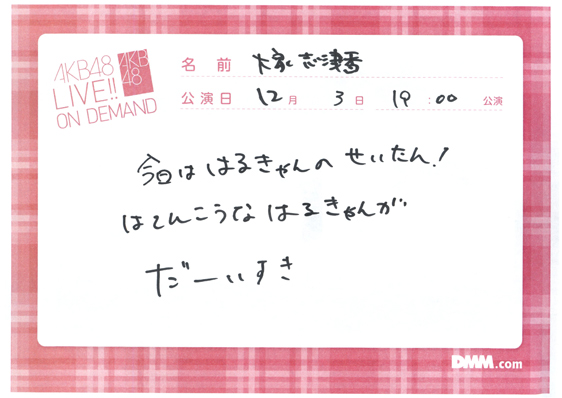 AKB48
LIVE!!
ON DEMAND
AKB
48
名前 大家志津香
公演日 12月 3日 19:00 公演
今日は はるきゃんの せいたん!
はてんこうな はるきゃんが
だーいすき
DMM.com